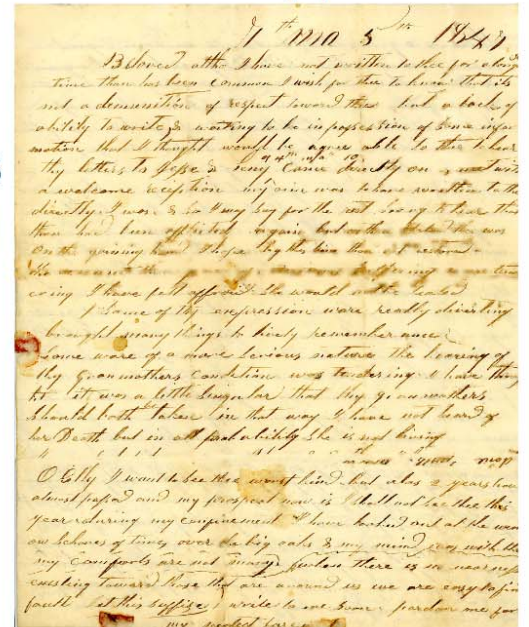 th mo 5 th 1847
Beloved altho I have not written to thee for a long
time than has been common I wish for thee to know that its
not a demunition of respect toward thee but a lack of
ability to write & waiting to be in possession of some infor
mation that I thought would be agree able to thee to hear
thy letters to Jesse & came directly on & met with
a welcome reception my aim was to have written to thee
directly I was & so I may say for the rest sorry to hear that
thou had been afflicted again but thou was
on the gaining hand I hope by this time thou art restored
I have felt affraid she would not be healed
Some of thy expression ware really diverting
brought many things to lively remember ance
Some ware of a more serious nature the hearing of
thy Granmothers condition was tendering I have thoug
it was a little singular that thy granmothers
Should both be taken in that way I have not heard of
her Death but in all probability she is not living
O Elly I want to see thee worst kind but alas 2 years have
almost passed and my prospect now is I shall not see thee this
year during my confinement I have looked out at the
times over the big oaks & my mind with thee
my comforts are not many when there is no nearness
existing toward those that are around us we are easy to find
fault let this suffice write to me soon pardon me for
my neglect